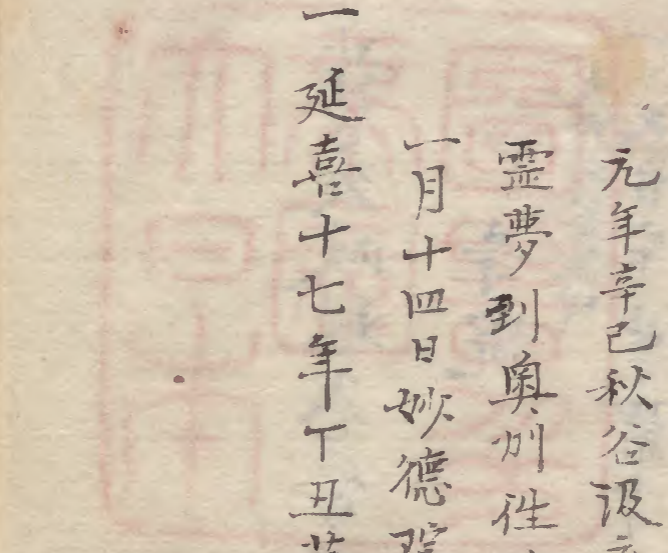 元年辛己秋谷汲
霊夢到奥州往
一月十四日妙徳
一延喜十七年丁丑